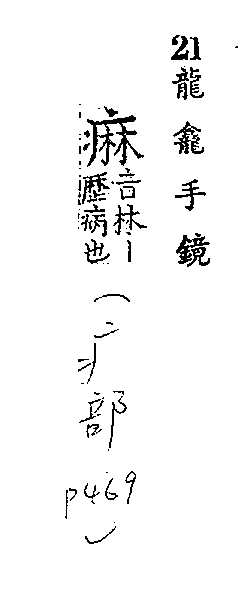 21龍龕手鏡
痳音林丨
歷病也
(疒部
p469)